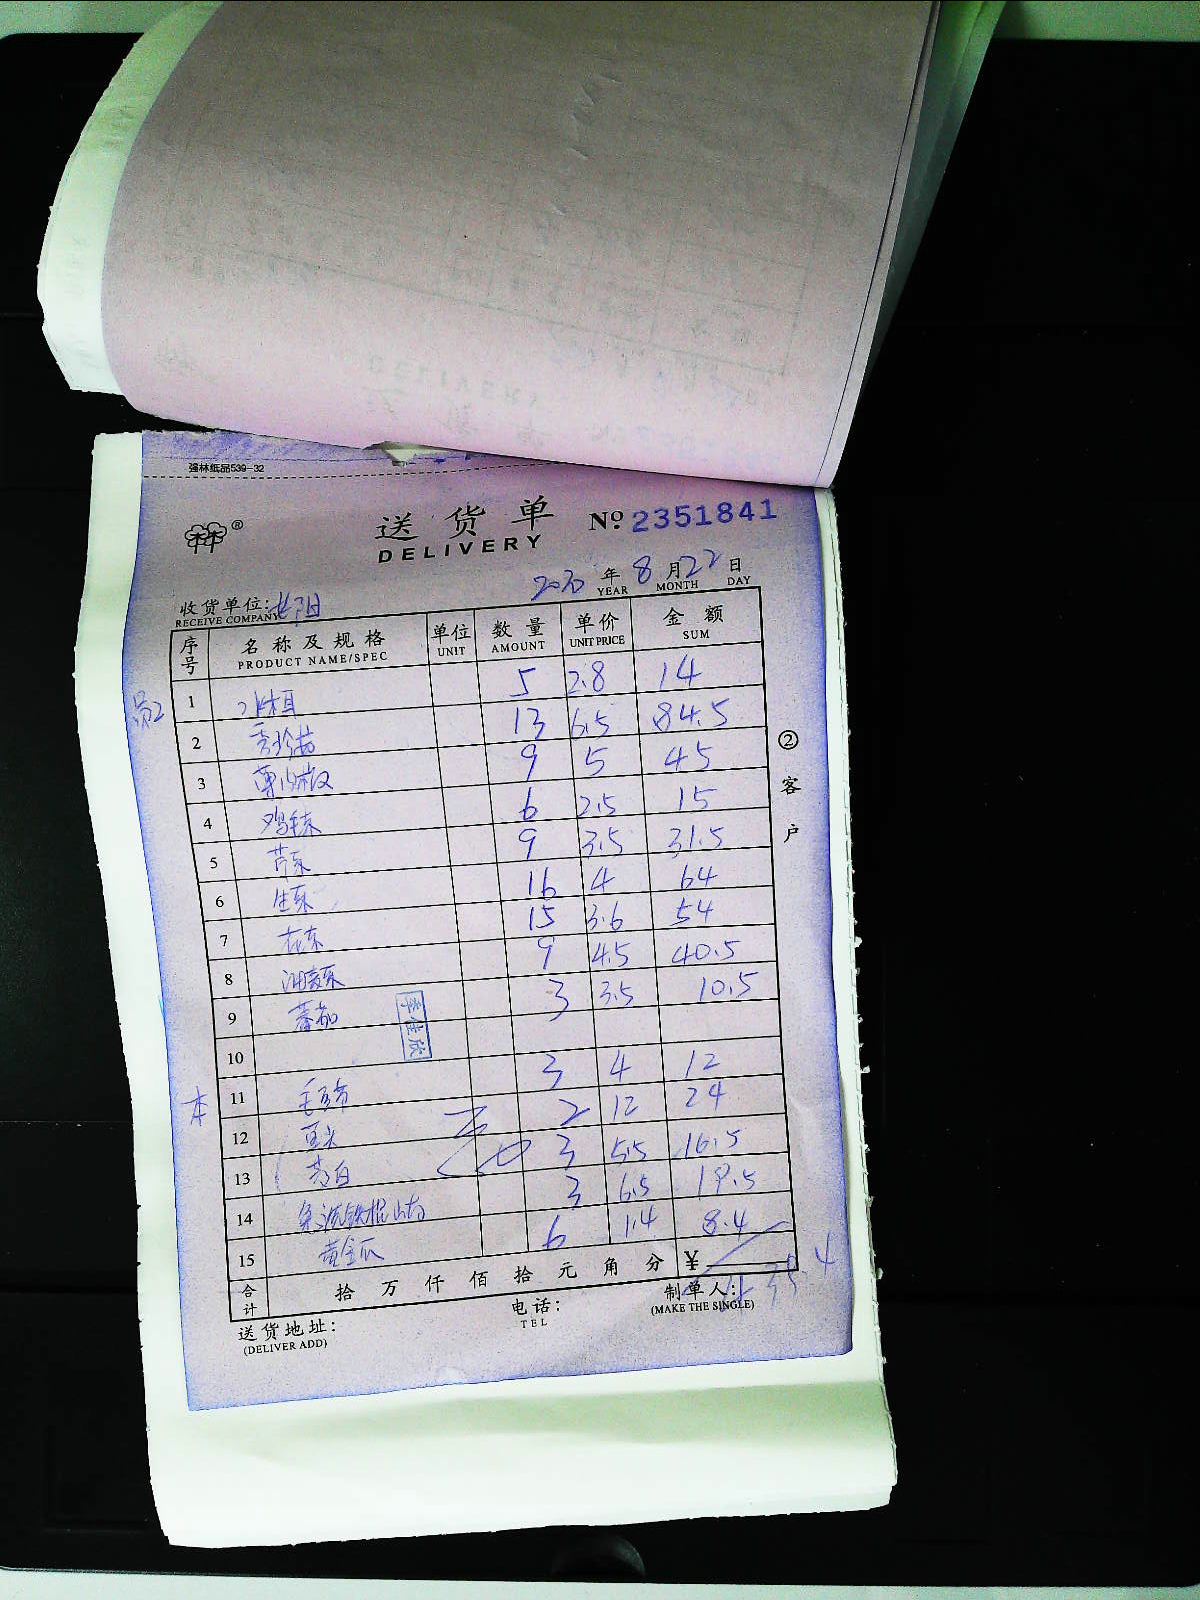 强林纸品539-32
送货单 № 2351841
DELIVERY
2020 年 8 月 22 日
YEAR MONTH DAY
收货单位:
RECEIVE COMPANY
序号 名称及规格 单位 数量 单价 金额
PRODUCT NAME/SPEC UNIT AMOUNT UNIT PRICE SUM
1 5 2.8 14
2 秀珍菇 13 6.5 84.5
3 9 5 45
4 鸡毛菜 6 2.5 15
5 9 3.5 31.5
6 生菜 16 4 64
7 花菜 15 3.6 54
8 油麦菜 9 4.5 40.5
9 蕃茄 3 3.5 10.5
李佳欣
10
本
11 3 4 12
12 2 12 24
13 茭白 3 5.5 16.5
14 铁棍山药 3 6.5 19.5
15 黄金瓜 6 1.4 8.4
合计 拾 万 仟 佰 拾 元 角 分 ¥
送货地址: 电话: 制单人:
(DELIVER ADD) TEL (MAKE THE SINGLE)
② 客户